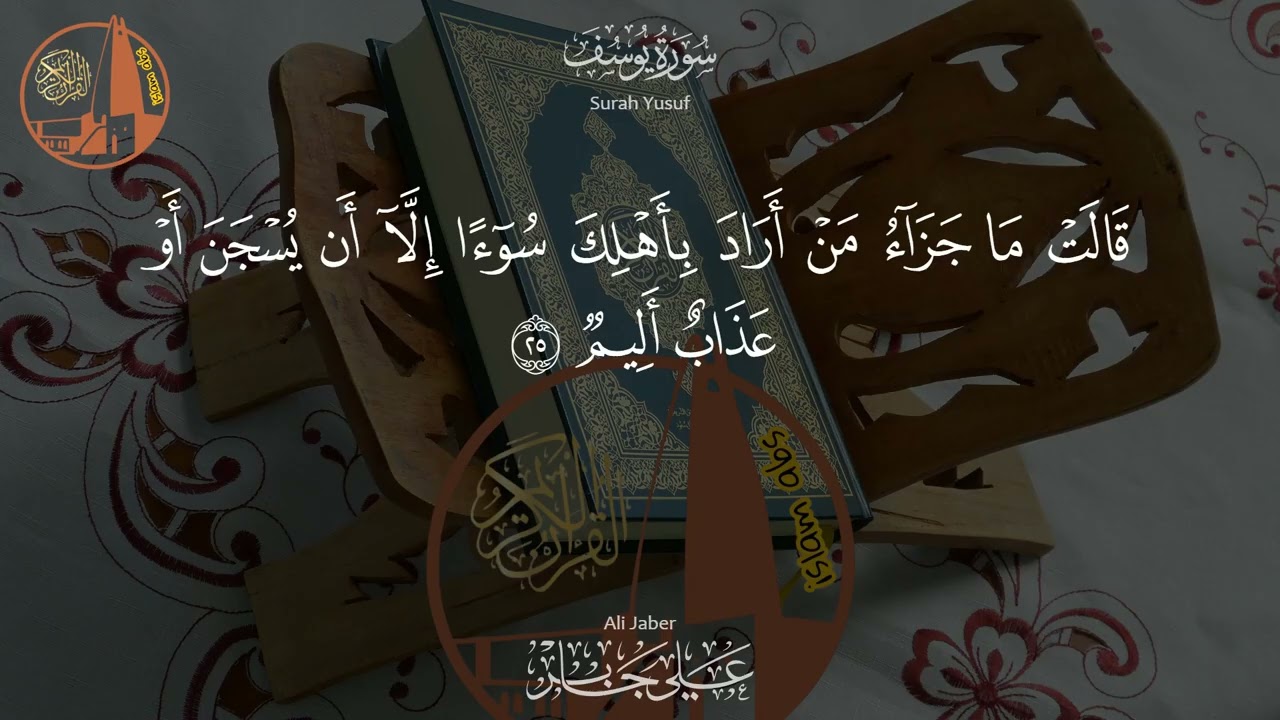 سُورَةُ يُوسُفَ
Surah Yusuf
القرآن الكريم
islam abs
قَالَتْ مَا جَزَآءُ مَنْ أَرَادَ بِأَهْلِكَ سُوٓءًا إِلَّآ أَن يُسْجَنَ أَوْ
عَذَابٌ أَلِيمٌ ٢٥
القرآن الكريم
islam abs
Ali Jaber
عَلِي جَابِر